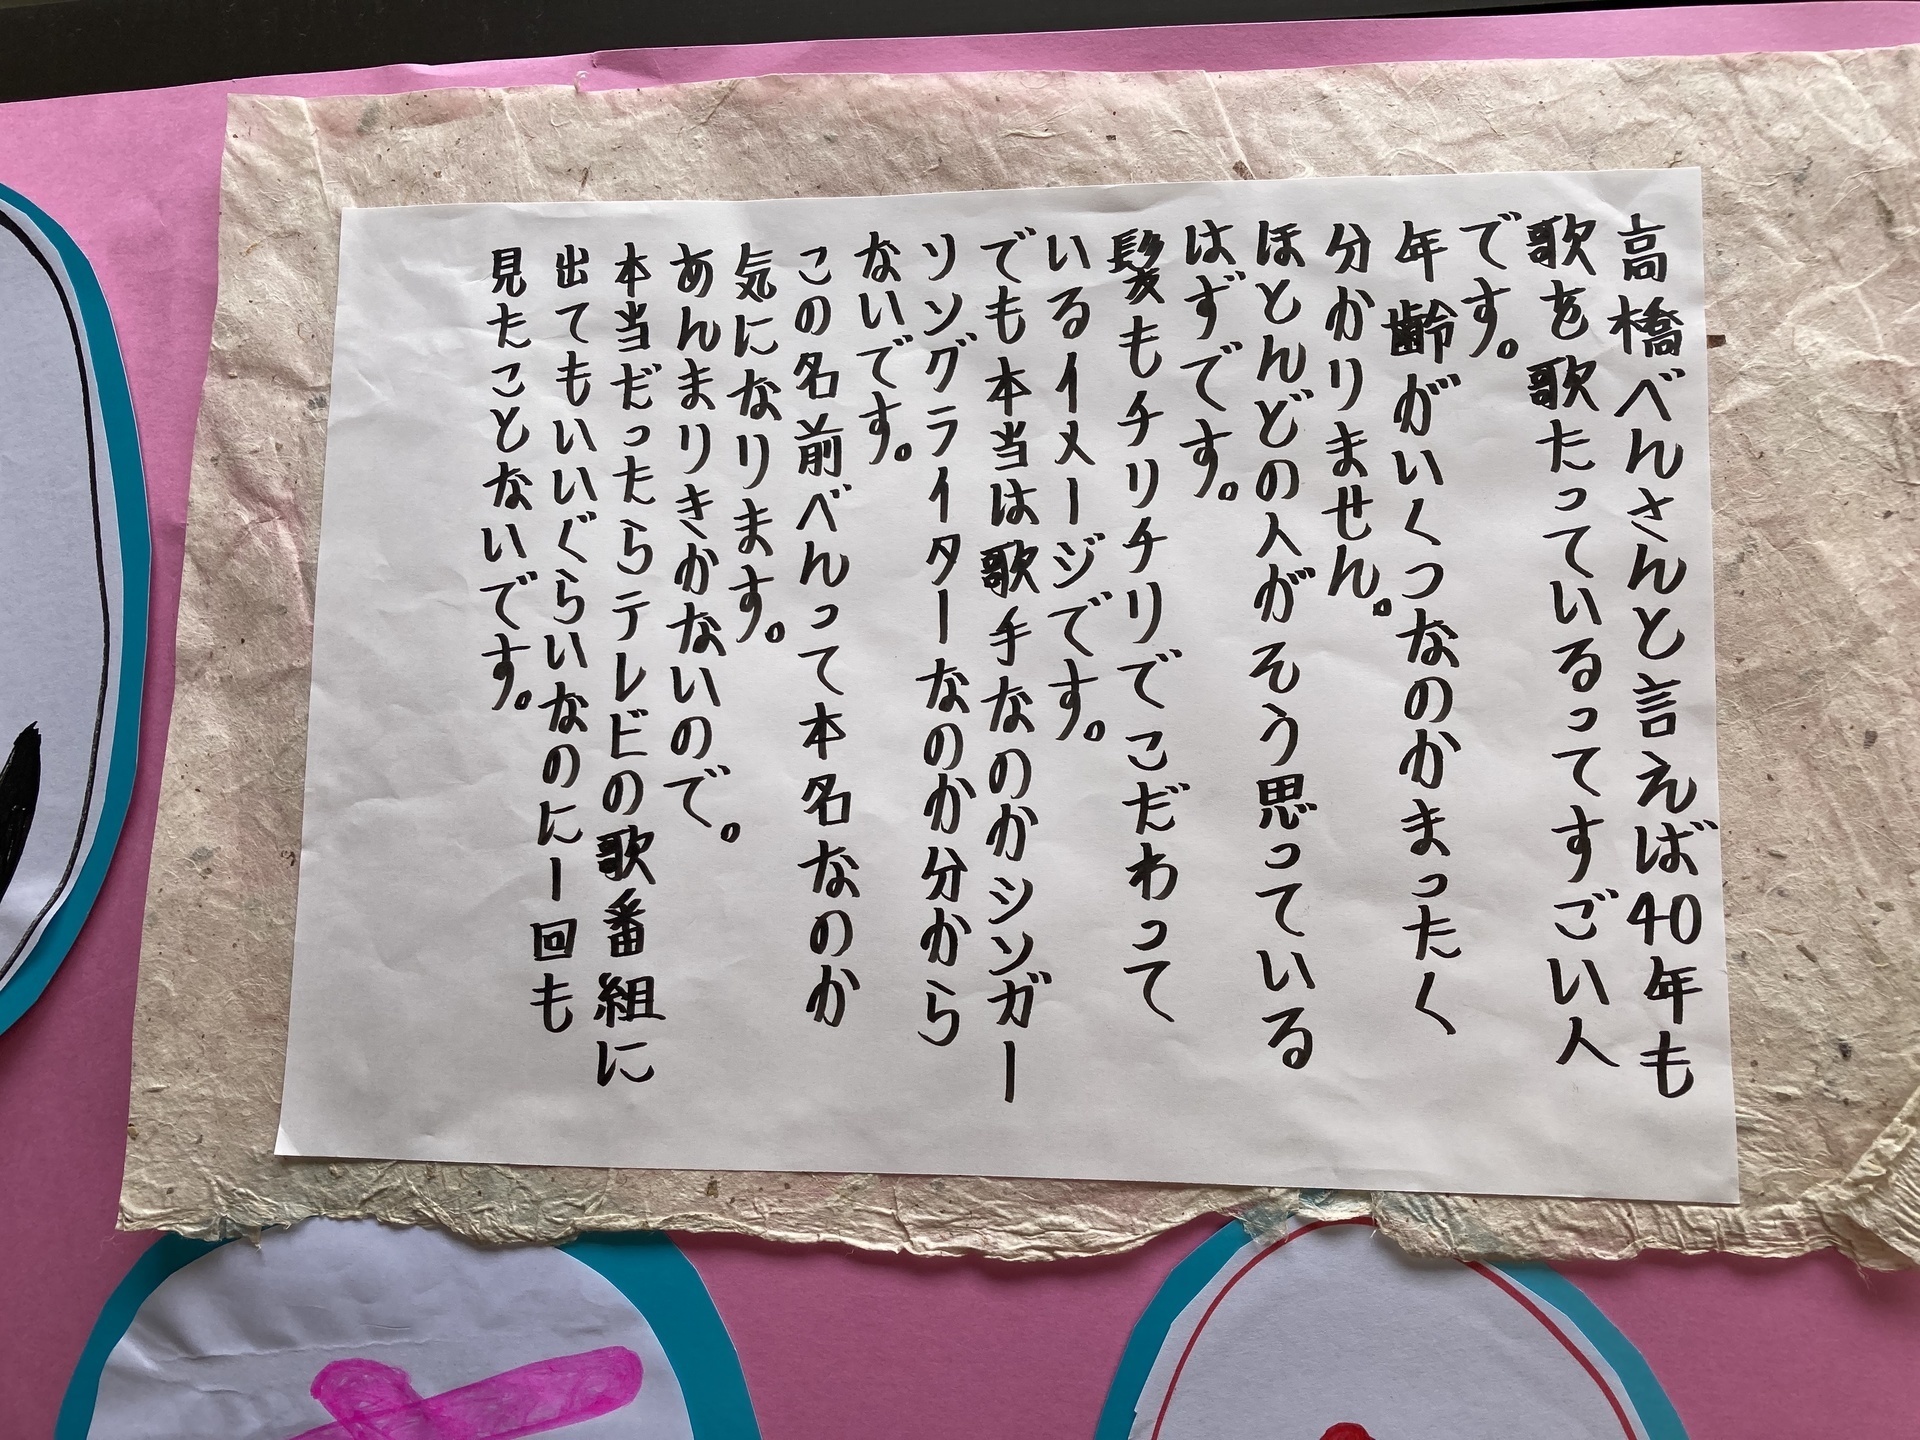 高橋べんさんと言えば40年も
歌を歌たっているってすごい人
です。
年齢がいくつなのかまったく
分かりません。
ほとんどの人がそう思っている
はずです。
髪もチリチリでこだわって
いるイメージです。
でも本当は歌手なのかシンガー
ソングライターなのか分から
ないです。
この名前べんって本名なのか
気になります。
あんまりきかないので。
本当だったらテレビの歌番組に
出てもいいぐらいなのに一回も
見たことないです。